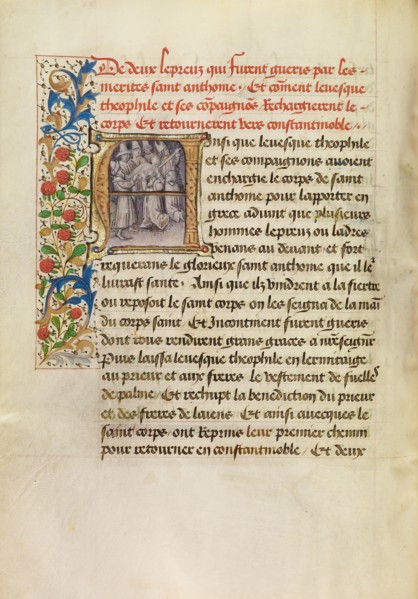 De deux lepreux qui furent gueris par les
merites saint anthoine. Et coment leuesque
theophile et ses copaignos Rechargierent le
corps Et retournerent vers constantinoble.
Ainsi que leuesque theophile
et ses compaignons auoient
enchargie le corps de saint
anthoine pour lapporter en
grece aduint que plusieurs
hommes lepreux ou ladres
venans au deuant et fort
requerans le glorieux saint anthoine que il leᵉ
liurast sante. Ainsi que ilz vindrent a la fiertre
ou reposoit le saint corps on les seigna de la mai
du corps saint Et Incontinent furent gueris
dont tous rendirent grans graces a nre seignr
Puis laissa leuesque theophile en lermitaige
au prieur et aux freres le vestement de fuelleˢ
de palme / Et rechupt la benediction du prieur
et des freres de laiens / Et ainsi auecques le
saint corps / ont Reprins leur premier chemin
pour retourner en constantinoble / Et deux